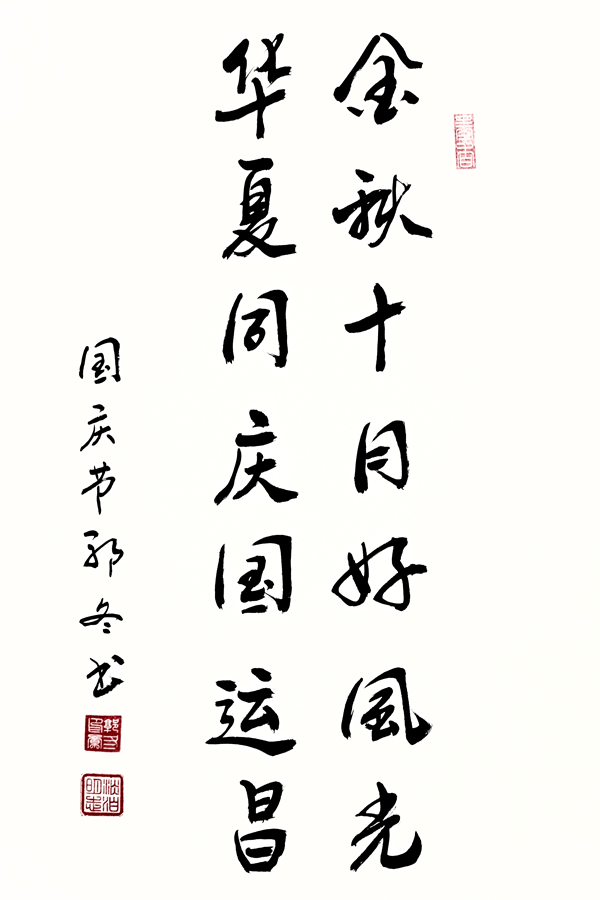 金秋十月好風光
华夏同庆国运昌
国庆节郭冬书